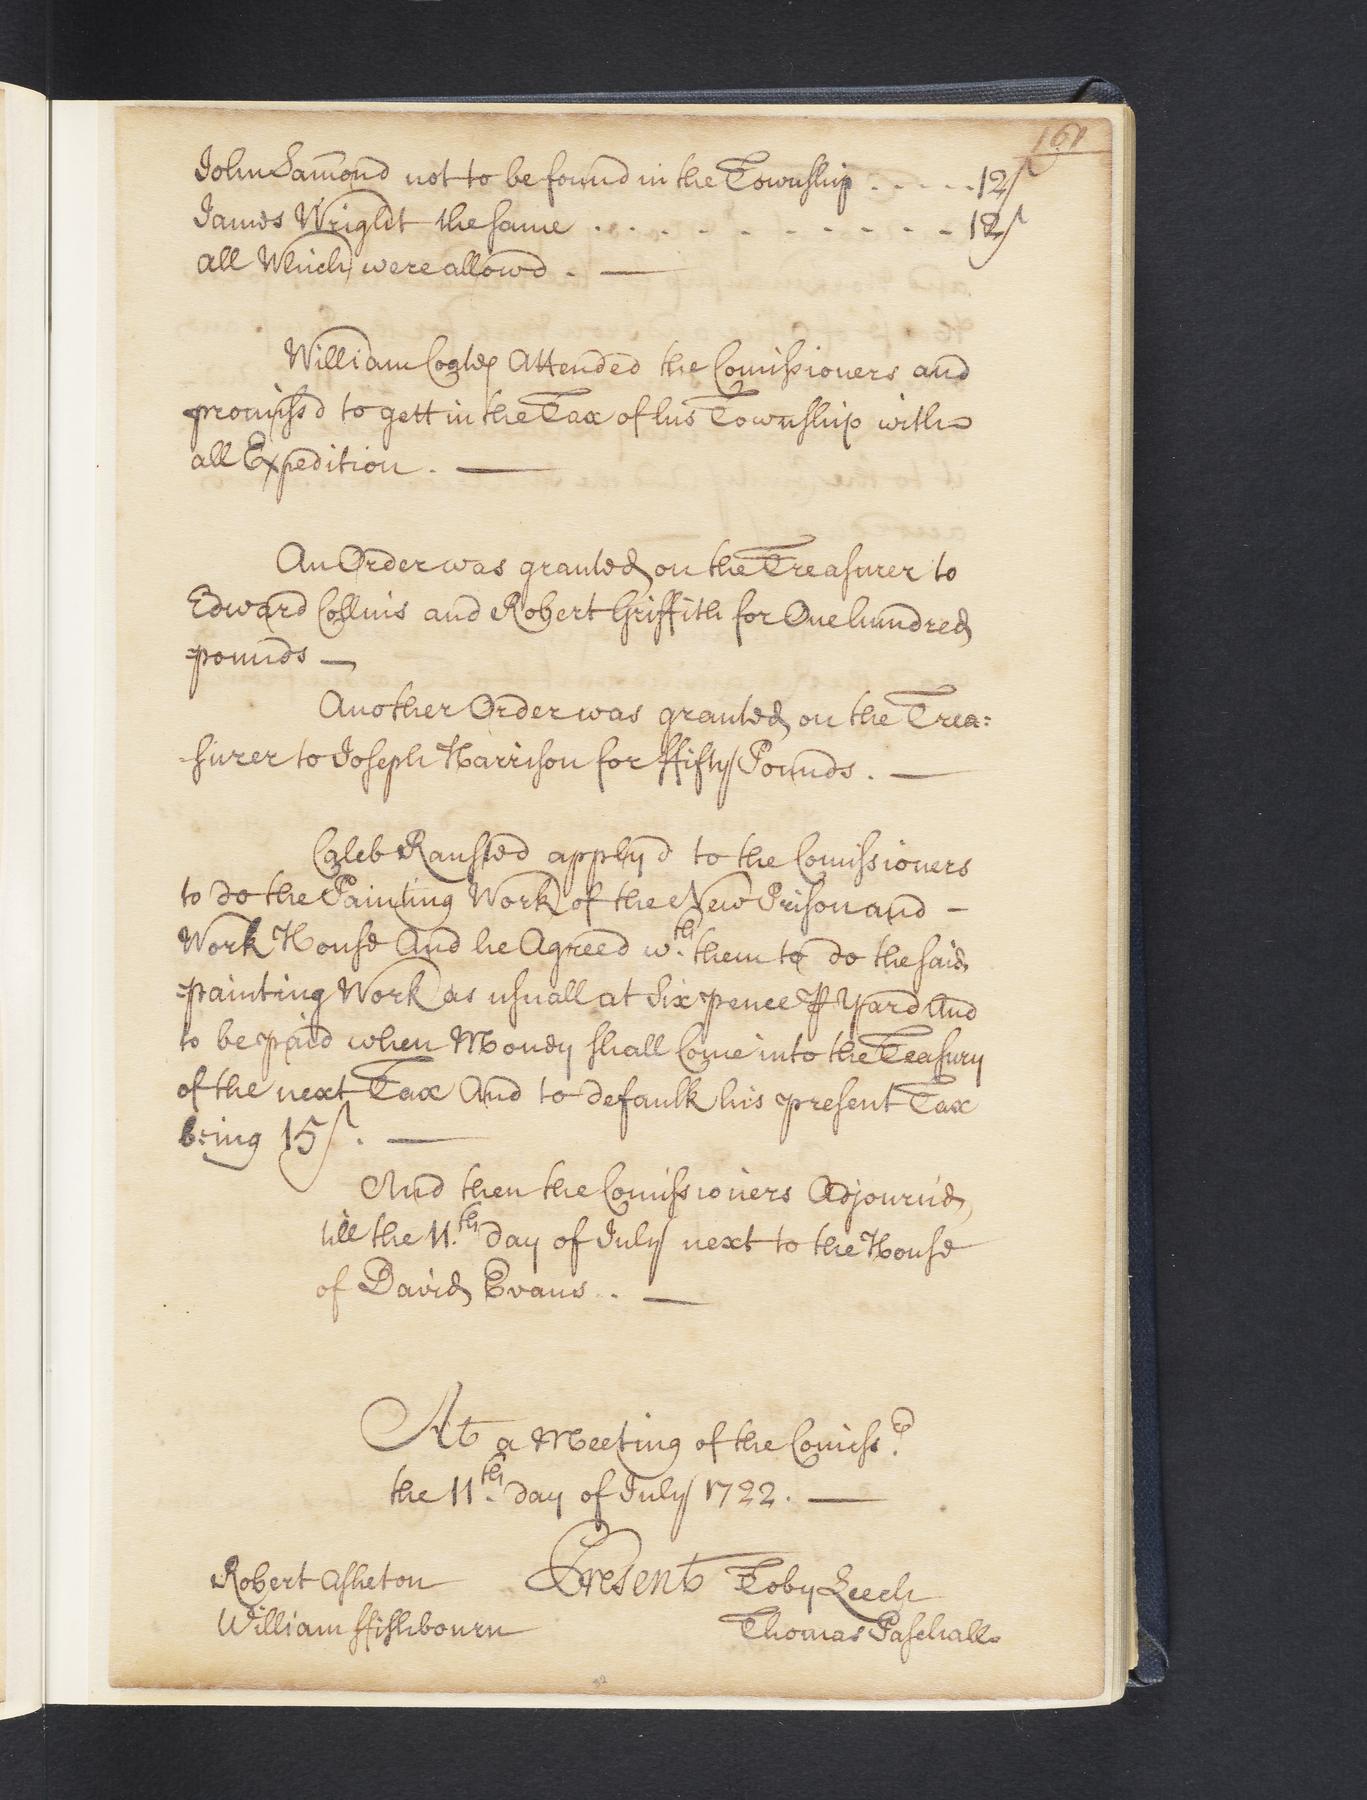 161
John Lamond not to be found in the Township . . . . . 12/
James Wright the same . . . . . . . . . . . 12/
all Which were allowd . —
William Coates Attended the Comissioners and
promissd to gett in the Tax of his Township with
all Expedition . —
An Order was granted on the Treasurer to
Edward Collins and Robert Griffith for One hundred
pounds —
Another Order was granted on the Trea:
surer to Joseph Harrison for ffifty Pounds . —
Caleb Ransted apply'd to the Comissioners
to do the Painting Work of the New Prison and -
Work House And he Agreed wth them to do the said
painting Work as usuall at Six pence ⅌ Yard And
to be paid when Money shall Come into the Treasury
of the next Tax And to defaulk his present Tax
being 15/. —
And then the Comissioners Adjourn'd
till the 11.th day of July next to the House
of David Evans . . —
At a Meeting of the Comissrs
the 11th. day of July 1722 . —
Robert Asheton Present Toby Leech
William ffishbourn Thomas Paschall